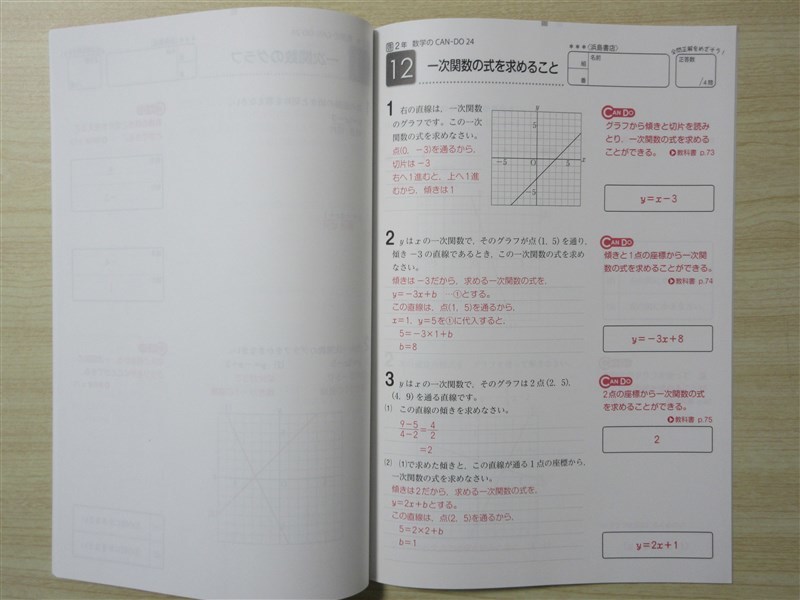 囲2年 数学のCAN-DO 24
12 一次関数の式を求めること
★★★〈浜島書店〉
組
番
名前
全問正解をめざそう!
正答数
/4問
1 右の直線は、一次関数
のグラフです。この一次
関数の式を求めなさい。
点(0, −3)を通るから、
切片は−3
右へ1進むと、上へ1進
むから、傾きは1
y
5
−5
O
5
x
−5
CAN DO
グラフから傾きと切片を読み
とり、一次関数の式を求める
ことができる。 教科書 p.73
y=x−3
2 yはxの一次関数で、そのグラフが点(1, 5)を通り、
傾き−3の直線であるとき、この一次関数の式を求め
なさい。
傾きは−3だから、求める一次関数の式を、
y=−3x+b …①とする。
この直線は、点(1, 5)を通るから、
x=1, y=5を①に代入すると、
5=−3×1+b
b=8
CAN DO
傾きと1点の座標から一次関
数の式を求めることができる。
教科書 p.74
y=−3x+8
3 yはxの一次関数で、そのグラフは2点(2, 5),
(4, 9)を通る直線です。
(1) この直線の傾きを求めなさい。
9−5/4−2=4/2
=2
CAN DO
2点の座標から一次関数の式
を求めることができる。
教科書 p.75
2
(2) (1)で求めた傾きと、この直線が通る1点の座標から、
一次関数の式を求めなさい。
傾きは2だから、求める一次関数の式を、
y=2x+bとする。
この直線は、点(2, 5)を通るから、
5=2×2+b
b=1
y=2x+1